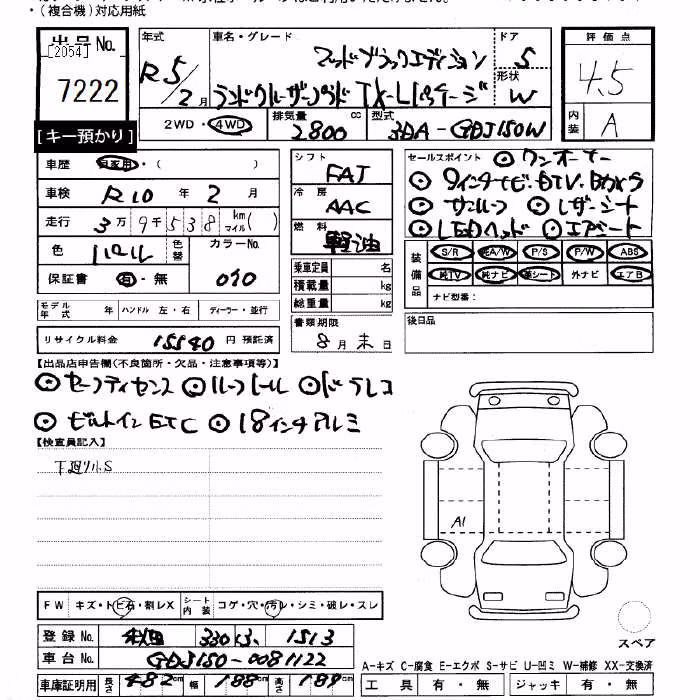 ・(複合機)対応用紙
出品No.
[2054]
7222
[キー預かり]
年式 車名・グレード ドア
R5/2月 マッドブラックエディション 5
ランドクルーザープラド TX-Lパッケージ 形状 W
2WD・4WD 排気量 2800 cc 型式 3DA-GDJ150W
評価点
4.5
内装 A
車歴 自家用・( )
車検 R10 年 2 月
走行 3万9千538 km マイル( )
色 パール 色替 カラーNo.
保証書 有・無 070
モデル年式 年 ハンドル 左・右 ディーラー・並行
リサイクル料金 15540 円 預託済
シフト FAT
冷房 AAC
燃料 軽油
乗車定員 名
積載量 kg
総重量 kg
書類期限
8月末日
セールスポイント ⊙ワンオーナー
⊙9インチナビ・DTV・Bカメラ
⊙サンルーフ ⊙レザーシート
⊙LEDヘッド ⊙エアシート
装備品 S/R 純A/W P/S P/W ABS
純TV 純ナビ 革シート 外ナビ エアB
ナビ型番:
後日品
【出品店申告欄(不良箇所・欠品・注意事項等)】
⊙セーフティセンス ⊙ルーフレール ⊙ドラレコ
⊙ビルトインETC ⊙18インチアルミ
【検査員記入】
下廻りS
A1
FW キズ・トビ石・割レX シート内装 コゲ・穴・汚レ・シミ・破レ・スレ
登録No. 330 1513
車台No. GDJ150-0081122
車庫証明用 長さ 482cm 幅 188cm 高さ 189cm
スペア
A-キズ C-腐食 E-エクボ S-サビ U-凹ミ W-補修 XX-交換済
工具 有・無 ジャッキ 有・無